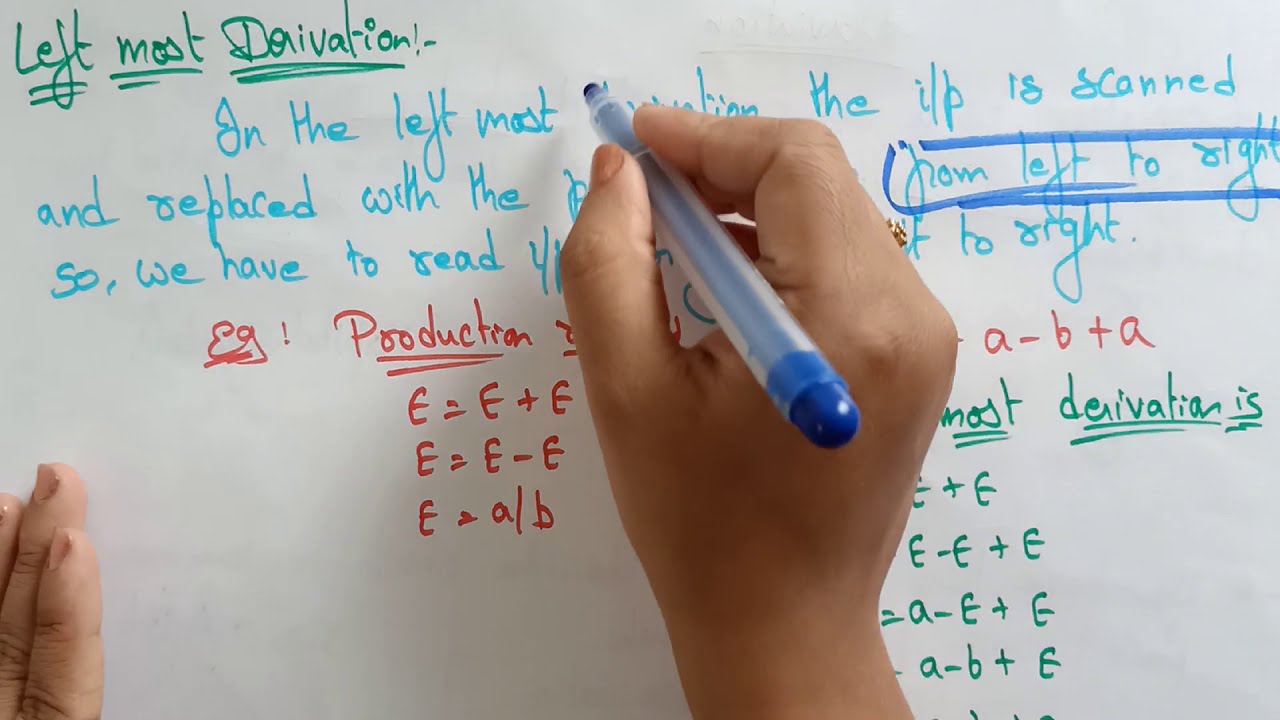 Left most Derivation:-
In the left most the i/p is scanned
and replaced with the from left to right
so, we have to read to right.
Eg: Production a-b+a
E = E + E
most derivation is
E = E - E
E + E
E = a/b
E - E + E
= a - E + E
a - b + E